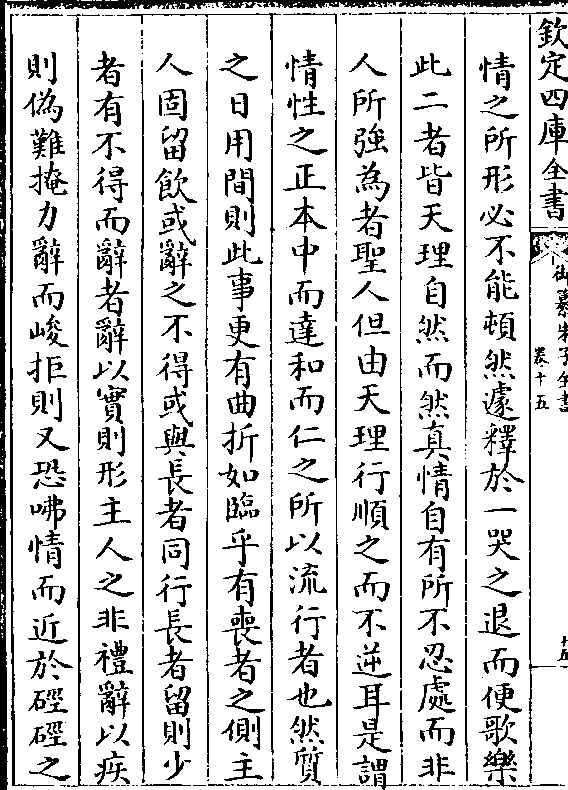 欽定四庫全書
御纂朱子全書
卷十五
情之所形必不能頓然遽釋於一哭之退而便歌樂
此二者皆天理自然而然真情自有所不忍處而非
人所強為者聖人但由天理行順之而不逆耳是謂
情性之正本中而達和而仁之所以流行者也然質
之日用間則此事更有曲折如臨乎有喪者之側主
人固留飲或辭之不得或與長者同行長者留則少
者有不得而辭者辭以實則形主人之非禮辭以疾
則偽難掩力辭而峻拒則又恐咈情而近於硜硜之